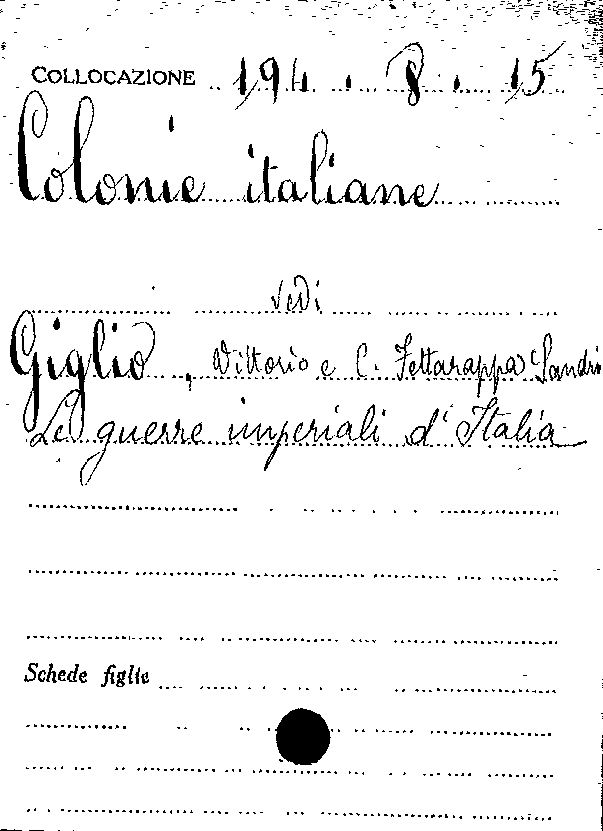 COLLOCAZIONE 194. 8. 15
Colonie italiane
vedi
Giglio, Vittorio e C. Fettarappa Sandri
Le guerre imperiali d'Italia
Schede figlie